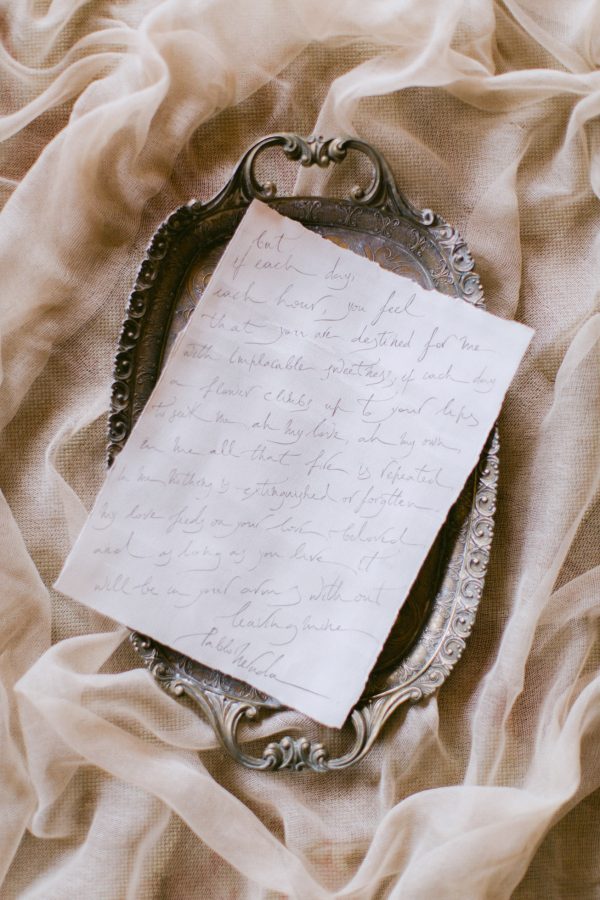 but
if each day,
each hour, you feel
that you are destined for me
with implacable sweetness, if each day
a flower climbs up to your lips
to seek me ah my love, ah my own,
in me all that fire is repeated
in me nothing is extinguished or forgotten
my love feeds on your love, beloved
and as long as you live it
will be in your arms without
leaving mine
Pablo Neruda